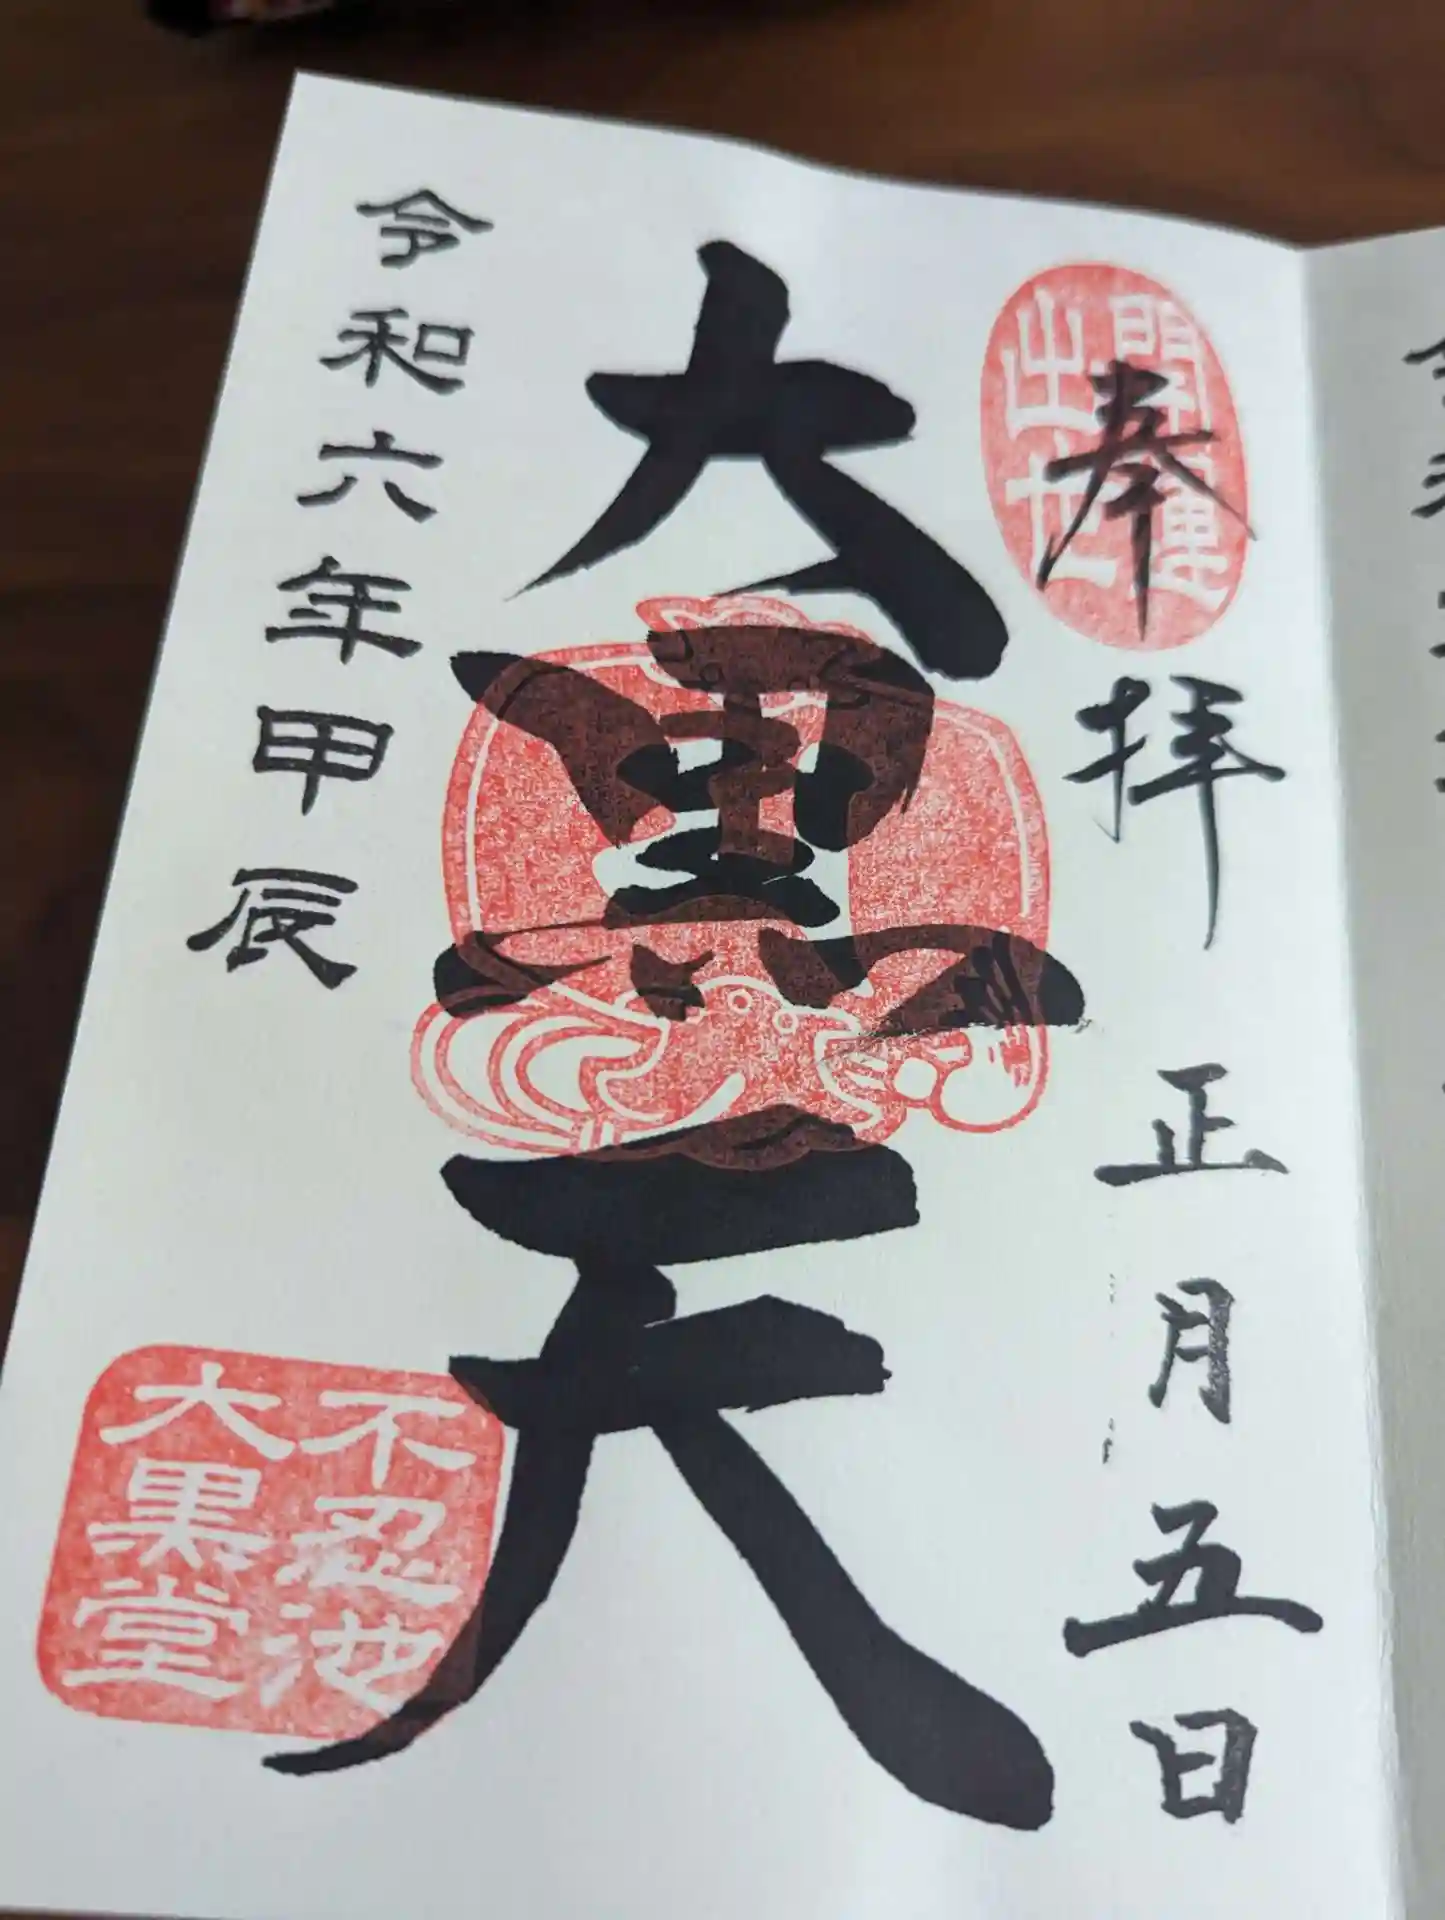 開運
出世
奉拝
正月五日
大黒天
令和六年甲辰
不忍池
大黒堂